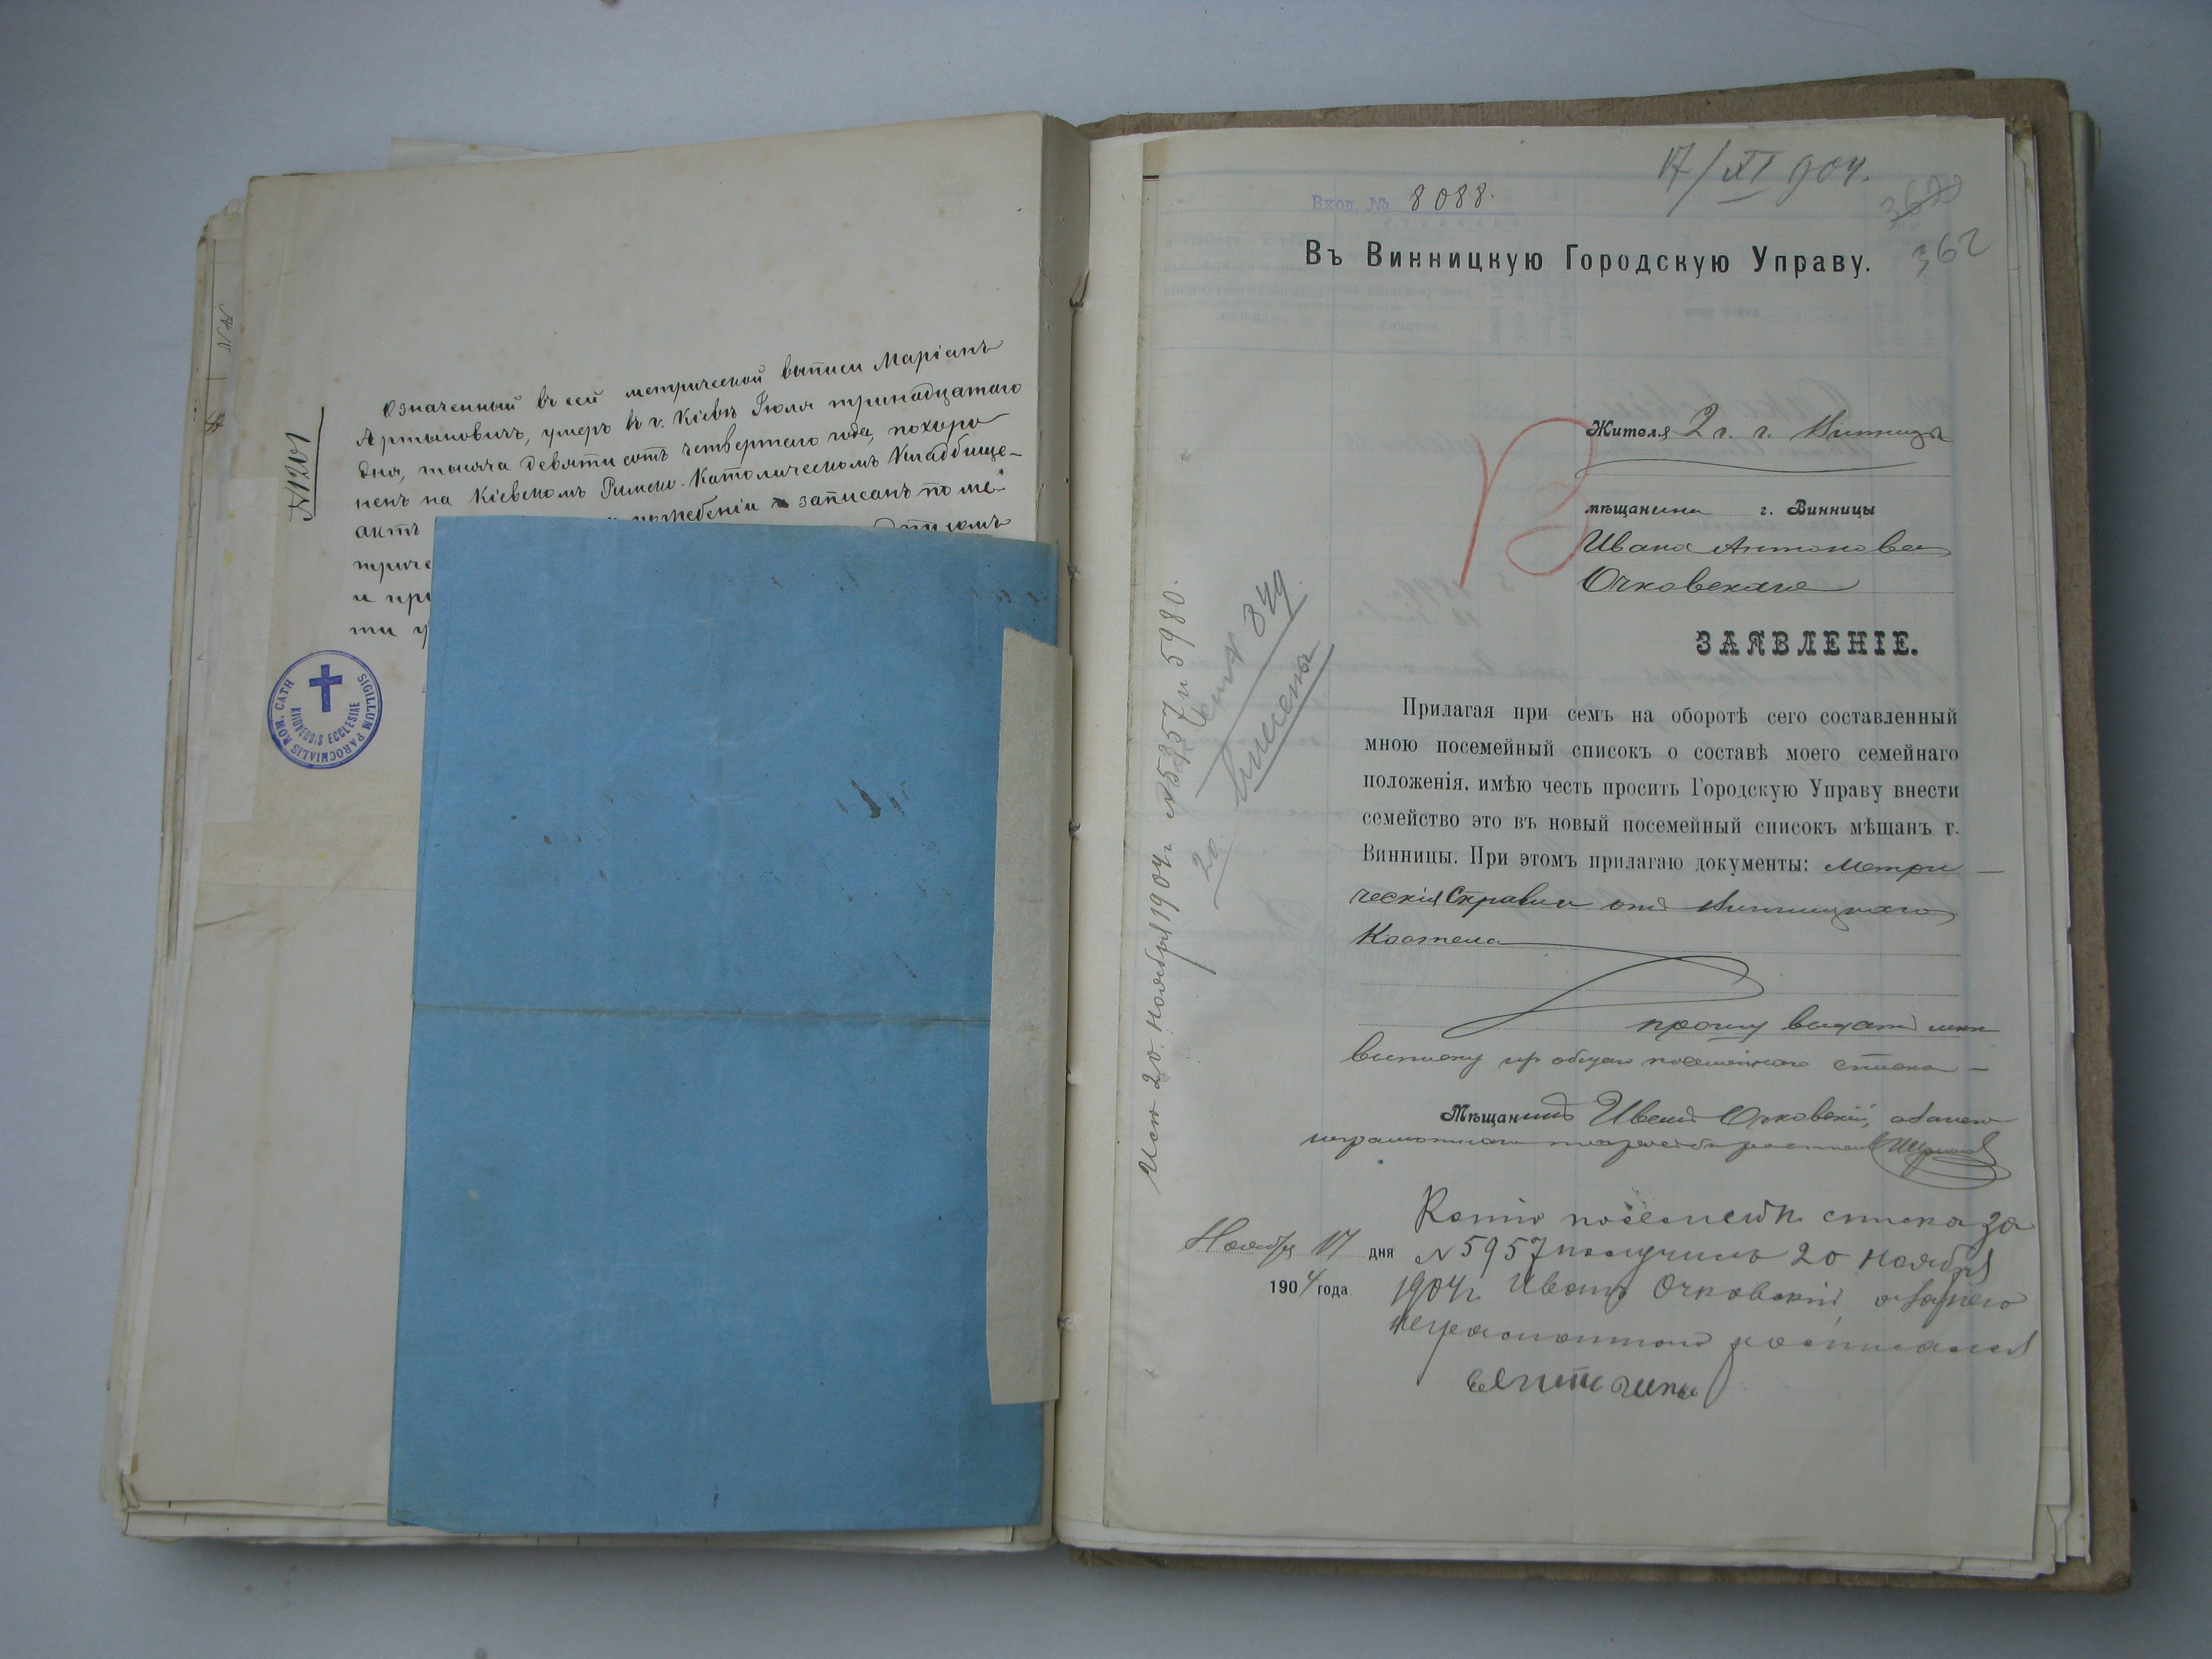 № 1201
Означенный въ сей метрической выписи Маріанъ
Артымовичъ, умеръ въ г. Кіевѣ Іюля тринадцатаго
дня, тысяча девятисотъ четвертаго года, похоро
ненъ на Кіевскомъ Римско-Католическомъ Кладбище-
актъ записанъ по ме-
триче
и при
ти
SIGILLUM PAROCHIALIS ROM. CATH
KIIOVENSIS ECCLESIAE
17/XI 904.
Вход. № 8088.
362
Въ Винницкую Городскую Управу.
Жителя 2 г. г. Винницы
мѣщанина г. Винницы
Ивана Антонова
Очковскаго
ЗАЯВЛЕНІЕ.
Прилагая при семъ на оборотѣ сего составленный
мною посемейный списокъ о составѣ моего семейнаго
положенія, имѣю честь просить Городскую Управу внести
семейство это въ новый посемейный списокъ мѣщанъ г.
Винницы. При этомъ прилагаю документы: Метри
ческія Справки отъ Винницкаго
Костела
прошу выдать мнѣ
выписку изъ общаго посемейного списка
Мѣщанинъ Иванъ Очковскій, а за него
неграмотнаго по просьбѣ
Ноября 17 дня
1904 года
Копію посемейн. списка за
№ 5957 получилъ 20 ноября
1904 г. Иванъ Очковскій а за него
неграмотного росписался
Исп. 20. Ноября 1904 г. № 5957 и 5980.
849
внесены
20